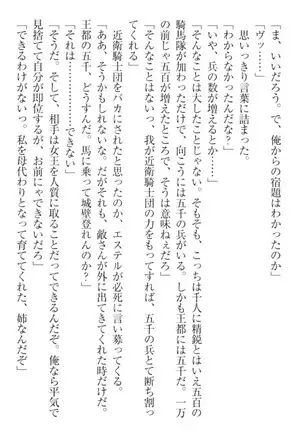 「ま、いいだろう。で、俺からの宿題はわかったのか」
「ヴッ……」
思いっきり言葉に詰まった。
「わからなかったんだな?」
「いや、兵の数が増えるとか……」
「そんなことは大したことじゃない。そもそも、こっちは千人に精鋭とはいえ五百の
騎馬隊が加わっただけで、向こうには五千の兵がいる。しかも王都には五千だ。一万
の前じゃ五百が増えたところで、そうは意味ねぇだろ」
「そんなことはないっ、我が近衛騎士団の力をもってすれば、五千の兵とて断ち割っ
てくれるっ」
近衛騎士団をバカにされたと思ったのか、エステルが必死に言い募ってくる。
「ああ、そうかもしれないな。だがそれも、敵さんが外に出てきてくれた時だけだ。
王都の五千、どうすんだ。馬に乗って城壁登れんのか?」
「それは…………できない」
「そうだ。そして、相手は女王を人質に取ることだってできるんだぞ。俺なら平気で
見捨てて自分が即位するが、お前にゃできないだろ」
「できるわけがないっ。私を母代わりとなって育ててくれた、姉なんだぞ」